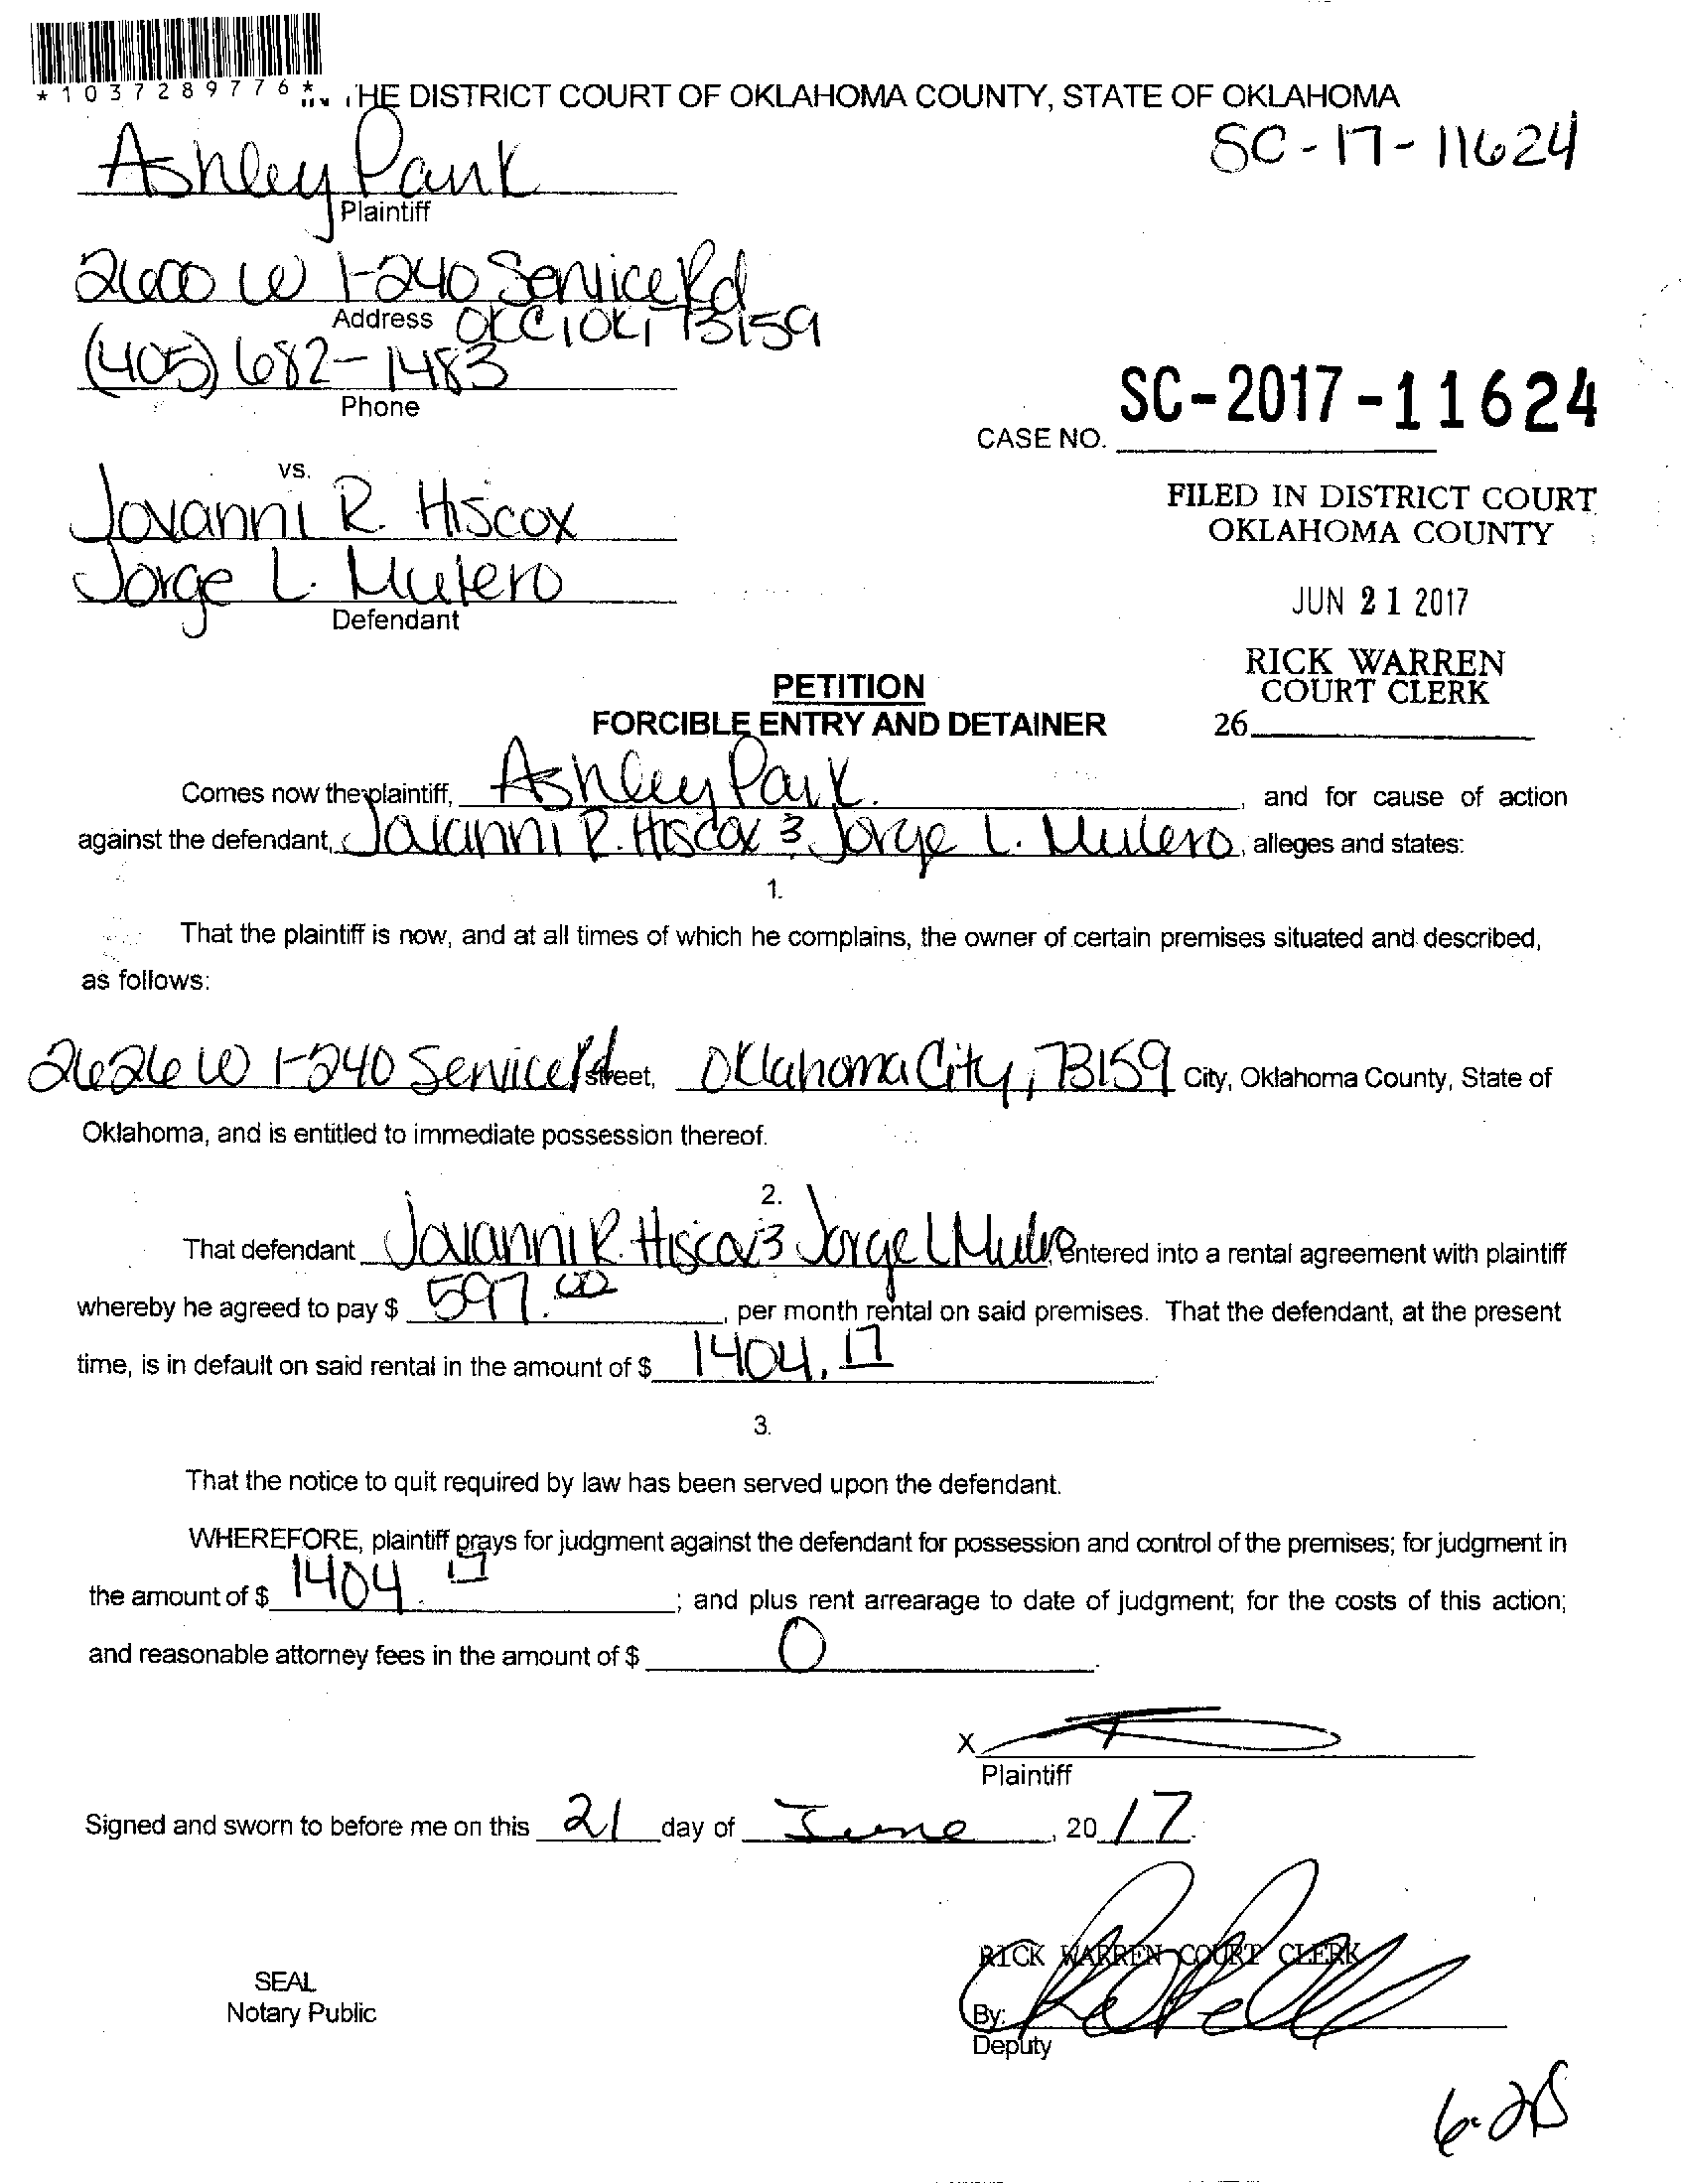 *1037289776*
HE DISTRICT COURT OF OKLAHOMA COUNTY, STATE OF OKLAHOMA
Ashley Park
SC-17-11624
Plaintiff
2600 W I-240 Service Rd
Address OKC, OK, 73159
(405) 682-1483
Phone
SC-2017-11624
CASE NO.
vs.
Jovanni R. Hiscox
FILED IN DISTRICT COURT
OKLAHOMA COUNTY
Jorge L. Mulero
Defendant
JUN 21 2017
RICK WARREN
COURT CLERK
26
PETITION
FORCIBLE ENTRY AND DETAINER
Comes now the plaintiff, Ashley Park, and for cause of action
against the defendant, Jovanni R. Hiscox & Jorge L. Mulero, alleges and states:
1.
That the plaintiff is now, and at all times of which he complains, the owner of certain premises situated and described,
as follows:
2626 W I-240 Service Rd street, Oklahoma City, 73159 City, Oklahoma County, State of
Oklahoma, and is entitled to immediate possession thereof.
2.
That defendant Jovanni R. Hiscox & Jorge L Mulero, entered into a rental agreement with plaintiff
whereby he agreed to pay $ 597.00, per month rental on said premises. That the defendant, at the present
time, is in default on said rental in the amount of $ 1404.17
3.
That the notice to quit required by law has been served upon the defendant.
WHEREFORE, plaintiff prays for judgment against the defendant for possession and control of the premises; for judgment in
the amount of $ 1404.17; and plus rent arrearage to date of judgment; for the costs of this action;
and reasonable attorney fees in the amount of $ 0.
X
Plaintiff
Signed and sworn to before me on this 21 day of June, 2017.
RICK WARREN COURT CLERK
SEAL
Notary Public
By:
Deputy
6-28